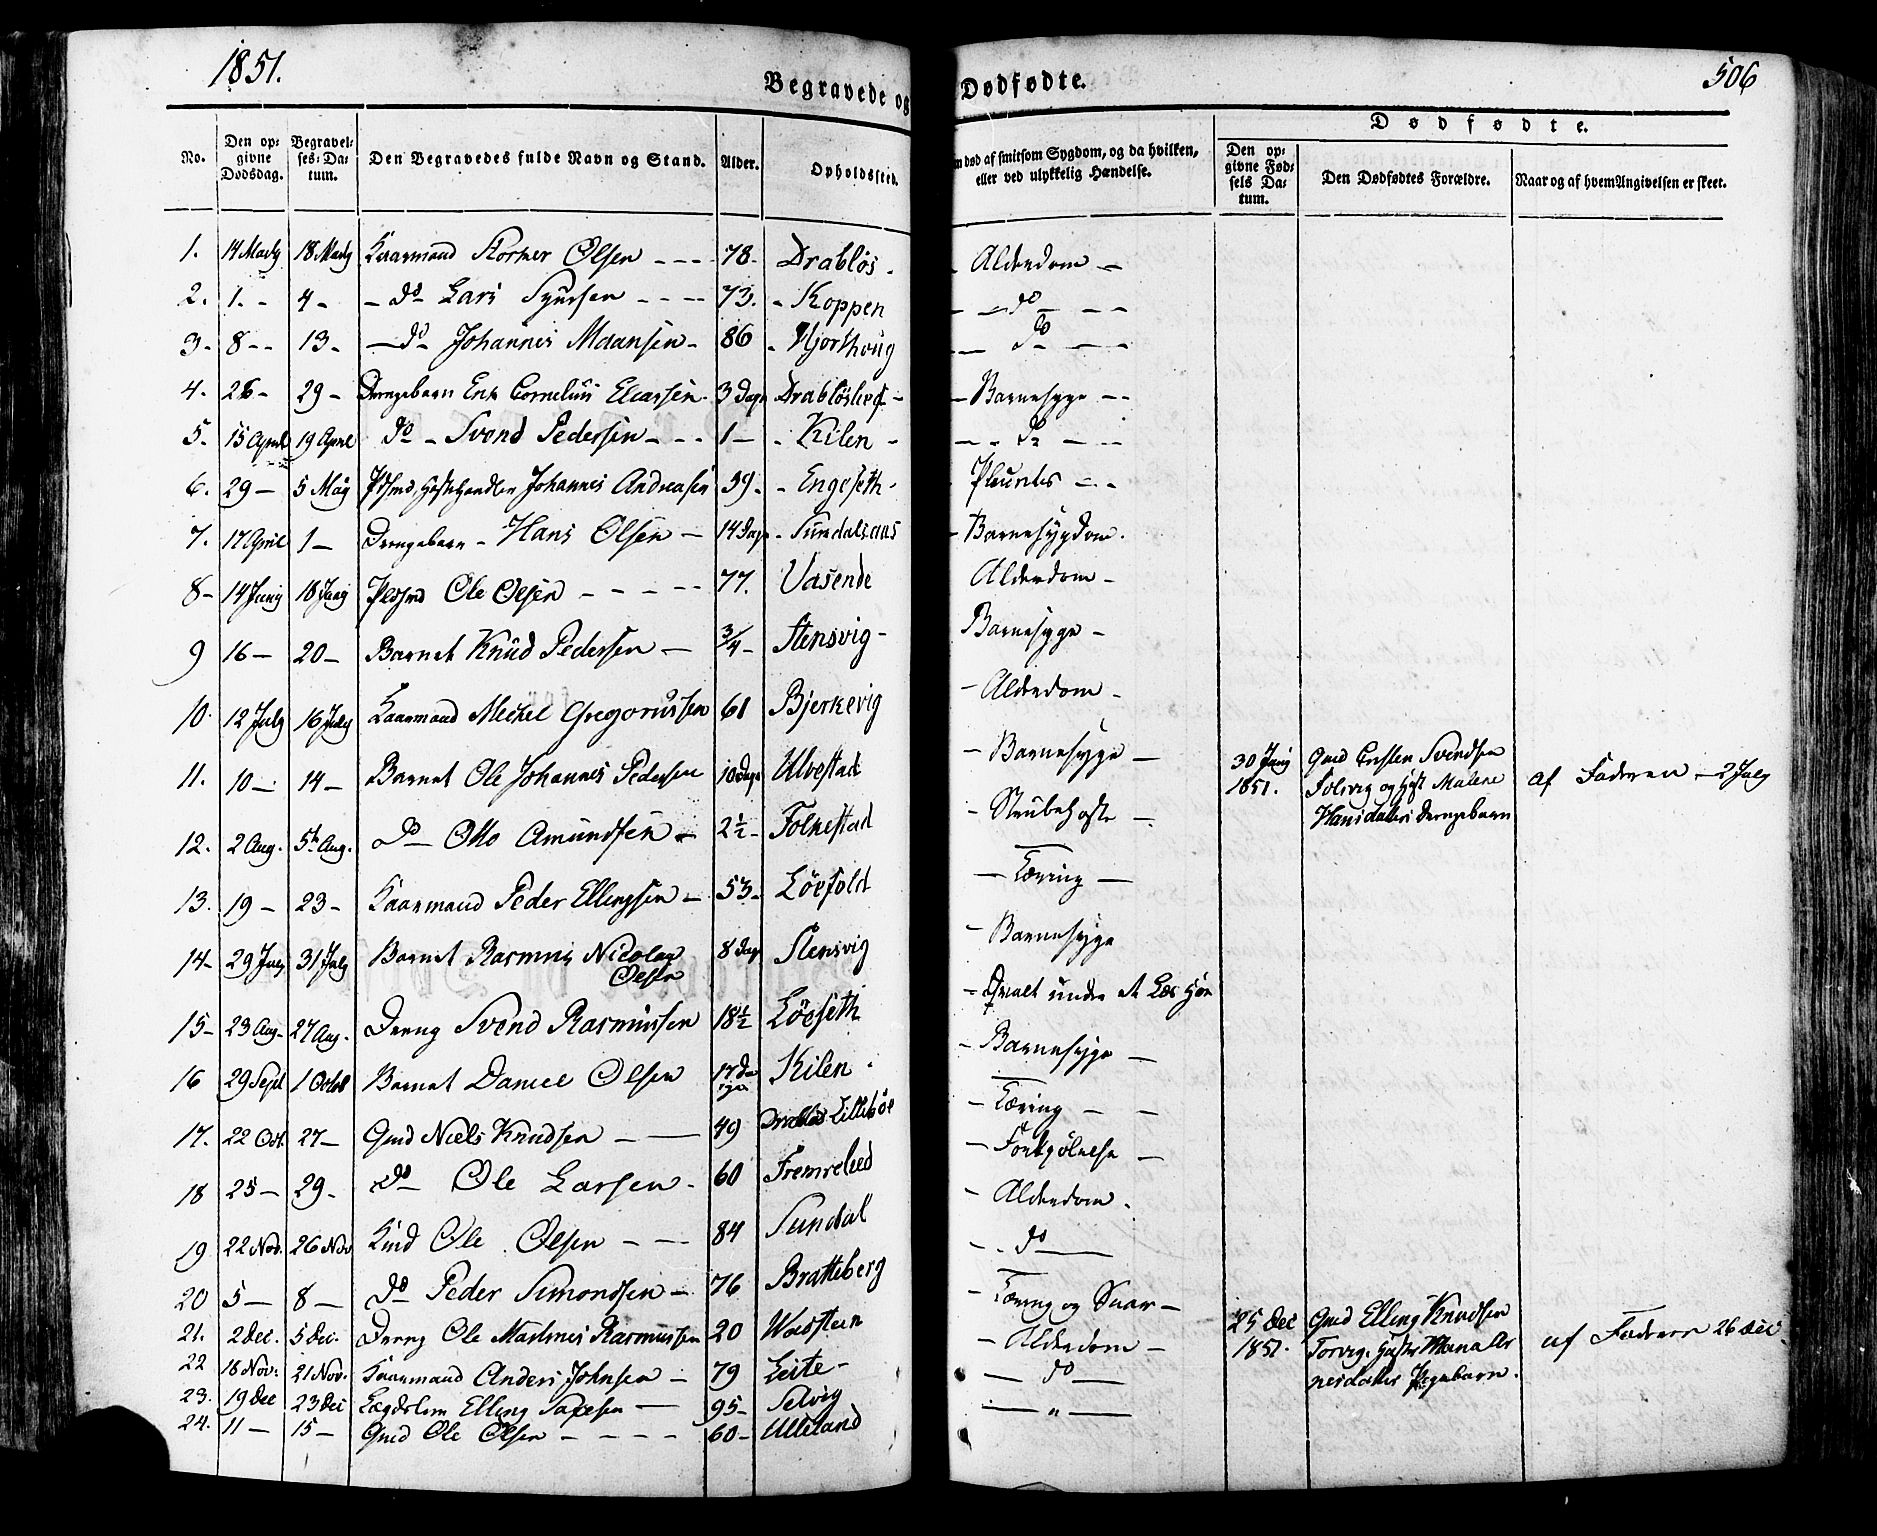 1851.
Begravede og Dødfødte.
506
No.
Den opgivne Dødsdag.
Begravelses-Datum.
Den Begravedes fulde Navn og Stand.
Alder.
Opholdssted.
død af smitsom Sygdom, og da hvilken, eller ved ulykkelig Hændelse.
Dødfødte.
Den opgivne Fødsels Datum.
Den Dødfødtes Forældre.
Naar og af hvem Angivelsen er skeet.
1. 14 Marty 18 Marty Kaarmand Olsen - - - 78. Drabløs. Alderdom -
2. 1. - 4 - - do Lars - - - - 73. - Koppen - - do - - -
3 - 8 - - 13 - - do Johannes Maansen - 86 - Hjorthoug - do - -
4. 26 - 29 - Drengebarn Cornelius Eliassen 3 Dage - Barnesyge - -
5. 15 April 19 April do - Svend Pedersen - - - 1 - - Kilen - - - do - -
6. 29 - 5 May Johannes Andreasen 39 - - Engeseth - - -
7. 17 April 1 - Drengebarn - Hans Olsen - 14 Dage - Sundalsaas - Barnesygdom.
8 - 14 Juny 18 Juny Ole Olsen - - - - - 77. Vasende Alderdom -
9 16 - 20 - Barnet Knud Pedersen - 3/4 - Stensvig - Barnesyge -
10. 12 July 16 July Kaarmand Mickel Gregoriussen 61 Bjerkevig - Alderdom -
11. 10 - 14 - Barnet Ole Johannes Pedersen 10 Dage Ulvestad - Barnesyge -
30 Juny 1851. Gmd Svendsen
og Malene
Hansdatters Drengebarn
af Faderen - 2 July
12. 2 Aug. 5te Aug. do Otto Amundsen - 2 1/2 - Folkestad - Strubehoste -
13. 19 - 23 - Kaarmand Peder Ellingsen - 53 - Løefold - Tæring -
14 - 29 July 31 July Barnet Rasmus Nicolay
Olsen 8 Dage Stensvig - Barnesyge
15 - 23 Aug - 27 Aug. Dreng Svend Rasmussen 18 1/2 Løeseth - Qvalt under et Læs Høe
16 29 Sept 1 Octob Barnet Daniel Olsen 17 Dage Kilen. - Barnesyge -
17. 22 Oct. 27 - Gmd Niels Knudsen - - 49 Drabløs Lillebøe - Tæring - -
18 25 - 29 - do Ole Larsen - 60 - Forkjølelse -
19 22 Nov. 26 Nov Ole Olsen - - 84 Sundal - Alderdom.
20 5 - 8 - do Peder Simondsen - 76 Bratteberg - - do -
21. 2 Dec. 5 Dec. Dreng Ole Martinus Rasmussen 20 Wassteen - Tæring og -
25 Dec 1851. Gmd Elling Knudsen
nesdatters Pigebarn.
af Faderen 26 Dec.
22 18 Nov: 21 Nov. Kaarmand Anders Johnsen - 79 Leite - - Alderdom -
23. 19 Dec 23 Dec Lægdslem Elling - 95 - Selvig - do -
24. 11 - 15 - Gmd Ole Olsen - - - - 60 - Ulleland - " -